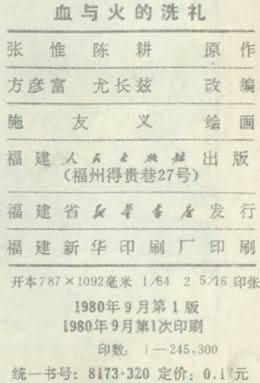 血与火的洗礼
张惟 陈耕 原作
方彦富 尤长兹 改编
施友义 绘画
福建人民出版社出版
(福州得贵巷27号)
福建省新华书店发行
福建新华印刷厂印刷
开本787×1092毫米 1/64 2 5/16 印张
1980年9月第1版
1980年9月第1次印刷
印数: 1—245,300
统一书号: 8173·320 定价: 0.17元